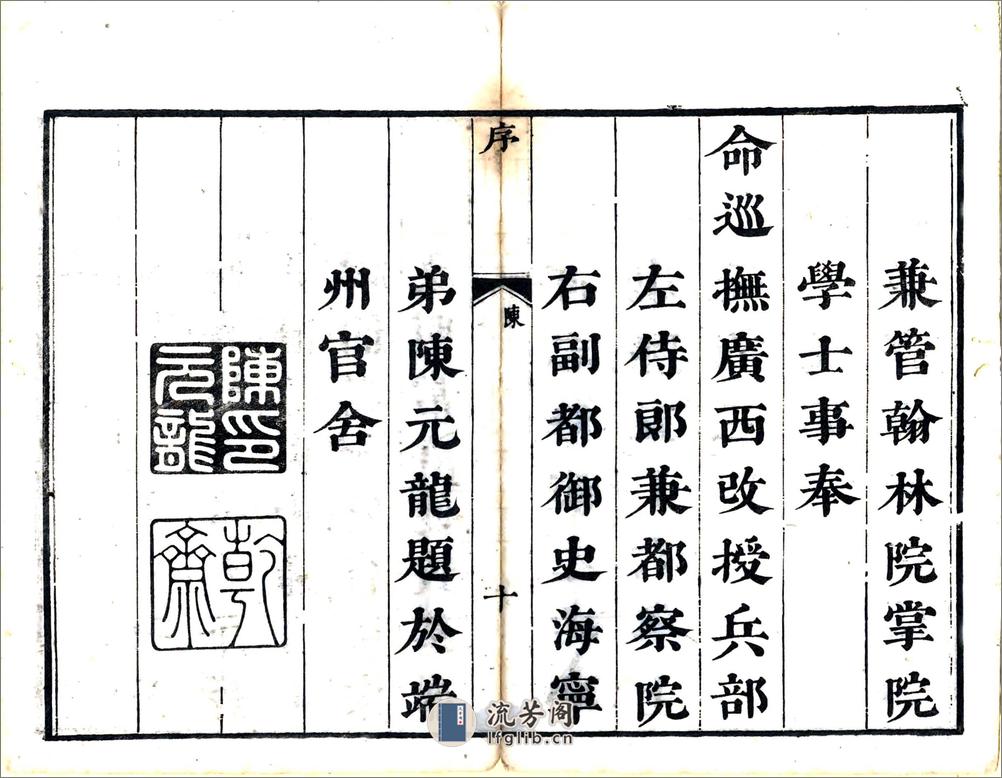 兼管翰林院掌院
學士事奉
命巡撫廣西改授兵部
左侍郞兼都察院
右副都御史海寧
序
陳
十
弟陳元龍題於端
州官舍
陳元龍印
乾齋
流芳阁
lfglib.cn